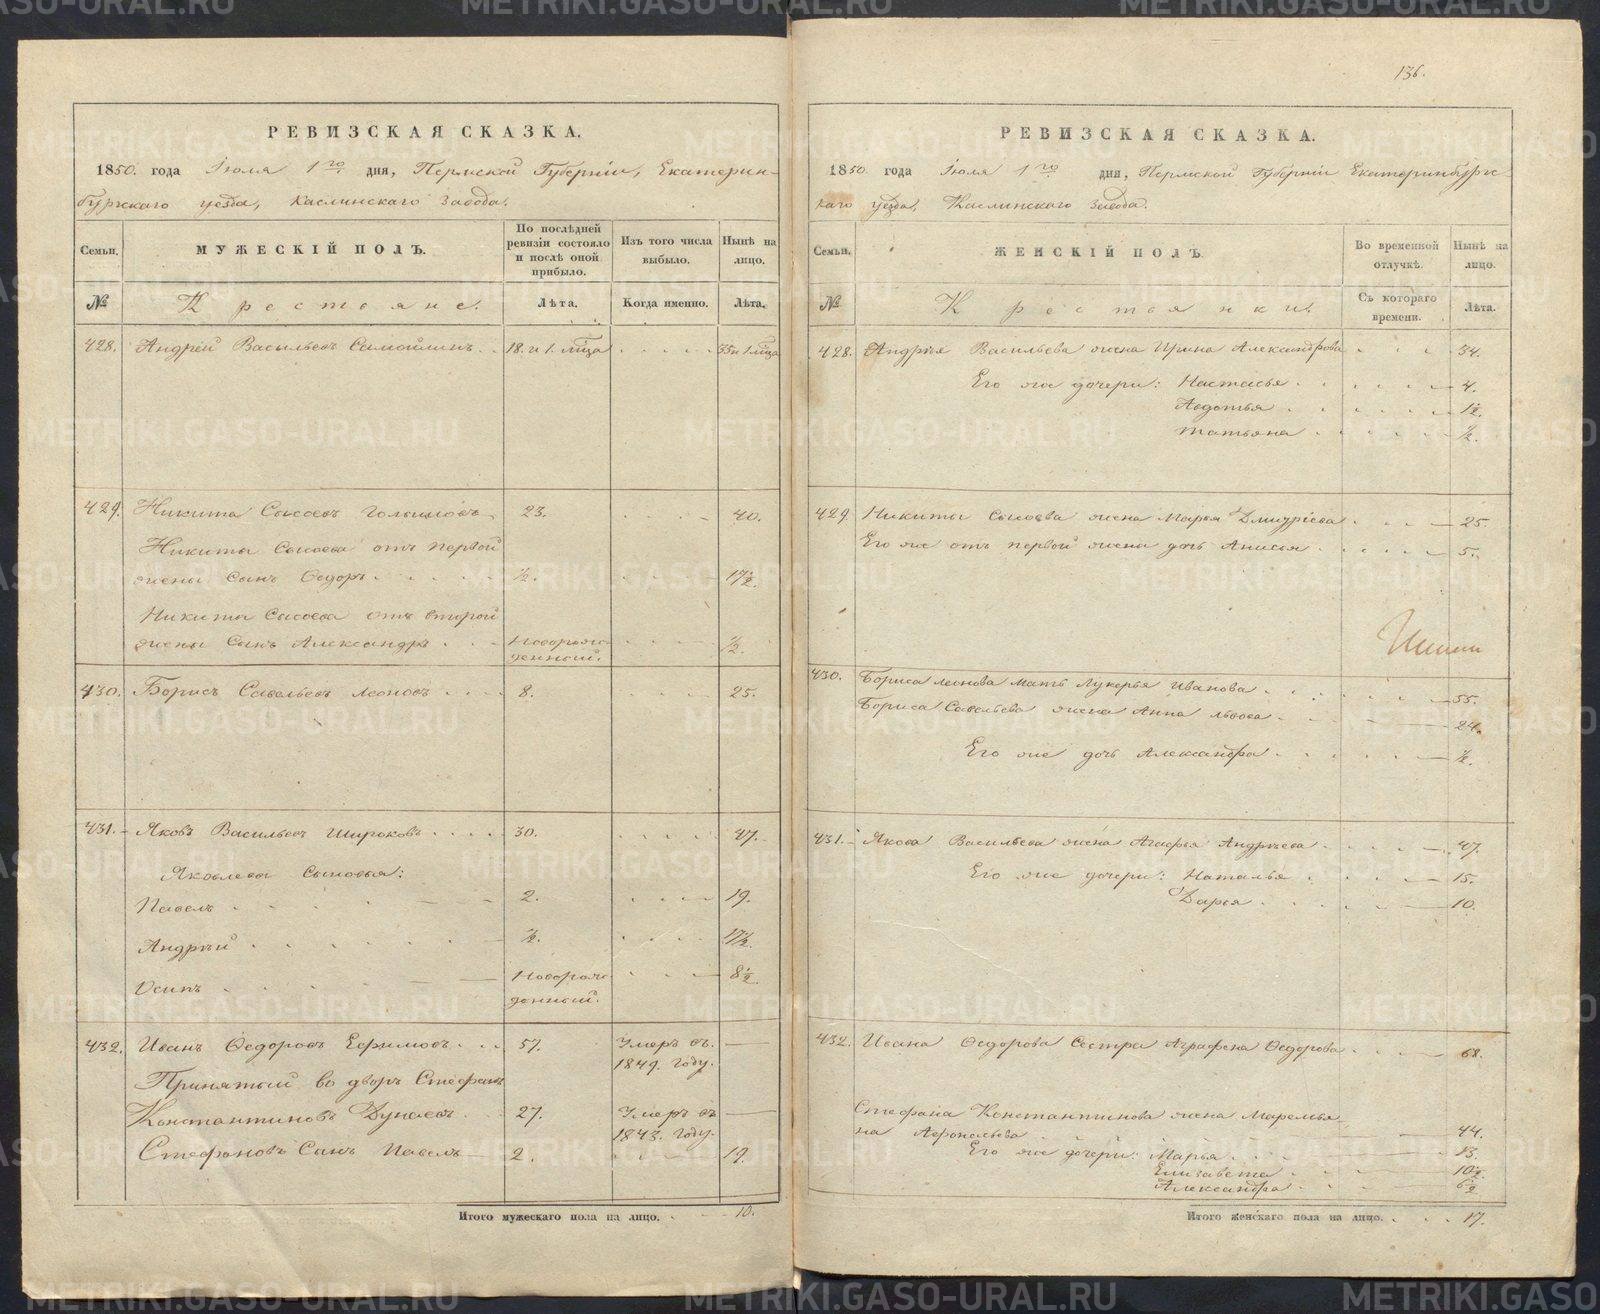 РЕВИЗСКАЯ СКАЗКА.
1850. года Іюля 1го. дня, Пермской Губерніи, Екатерин-
бургскаго уезда, Каслинскаго Завода.
Семьи.
МУЖЕСКІЙ ПОЛЪ.
По послѣдней ревизіи состояло и послѣ оной прибыло.
Изъ того числа выбыло.
Нынѣ на лицо.
№
Крестьяне.
Лѣта.
Когда именно.
Лѣта.
428. Андрей Васильевъ Самойлинъ. 18. и 1. мца 35 и 1 мца
429. Никита Сысоевъ 23. 40.
Никиты Сысоева отъ первой
жены Сынъ Ѳедоръ. ½. 17½.
Никиты Сысоева отъ второй
жены Сынъ Александръ Новорож-
денный. ½.
430. Борисъ Савельевъ Леоновъ 8. 25.
431. Яковъ Васильевъ Широковъ 30. 47.
Яковлевы Сыновья:
Павелъ 2. 19.
Андрей ½. 17½.
Осипъ Новорож-
денный. 8½.
432. Иванъ Ѳедоровъ Ефимовъ 57. Умеръ въ —
1849. году.
Принятый во дворъ Стефанъ
Константиновъ Дунаевъ 27. Умеръ въ —
1843. году.
Стефановъ Сынъ Павелъ 2. 19.
Итого мужескаго пола на лицо. 10.
136.
РЕВИЗСКАЯ СКАЗКА.
1850. года Іюля 1го. дня, Пермской Губерніи Екатеринбургс-
каго уезда, Каслинскаго Завода.
Семьи.
ЖЕНСКІЙ ПОЛЪ.
Во временной отлучкѣ.
Нынѣ на лицо.
№
Крестьянки.
Съ котораго времени.
Лѣта.
428. Андрея Васильева жена Ирина Александрова 34.
Его же дочери: Настасья 4.
Авдотья 1½.
Татьяна ½.
429. Никиты Сысоева жена Марья Дмитріева 25.
Его же отъ первой жены дочь Анисья 5.
430. Бориса Леонова мать Лукерья Иванова 55.
Бориса Савельева жена Анна Львова 24.
Его же дочь Александра ½.
431. Якова Васильева жена Агафья Андреева 47.
Его же дочери: Наталья 15.
Дарья 10.
432. Ивана Ѳедорова Сестра Аграфена Ѳедорова 68.
Стефана Константинова жена Маремья-
на 44.
Его же дочери: Марья 13.
Елизавета 10½.
Александра 6½.
Итого женскаго пола на лицо. 17.
METRIKI.GASO-URAL.RU